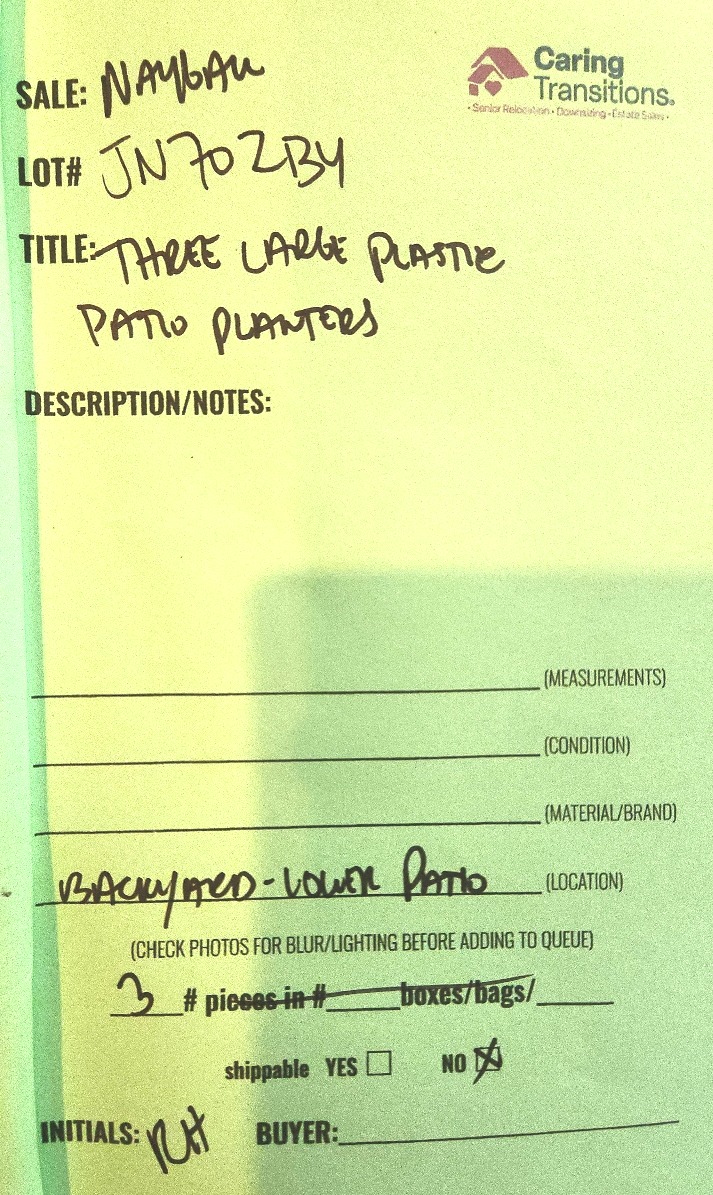 Caring
Transitions.
• Senior Relocation • Downsizing • Estate Sales •
SALE:
LOT# JN702BY
TITLE: THREE LARGE PLASTIC
PATIO PLANTERS
DESCRIPTION/NOTES:
(MEASUREMENTS)
(CONDITION)
(MATERIAL/BRAND)
BACKYARD-LOWER PATIO (LOCATION)
(CHECK PHOTOS FOR BLUR/LIGHTING BEFORE ADDING TO QUEUE)
3 # pieces in # boxes/bags/
shippable YES NO
INITIALS: RH BUYER: